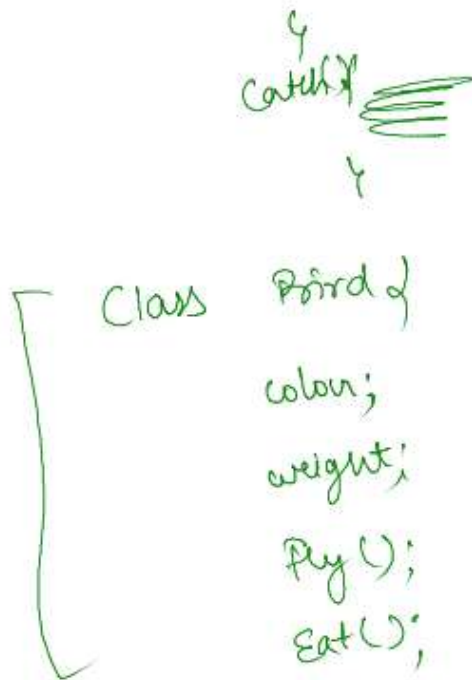 }
catch(){
}
Class Bird {
colour;
weight;
Fly();
Eat();